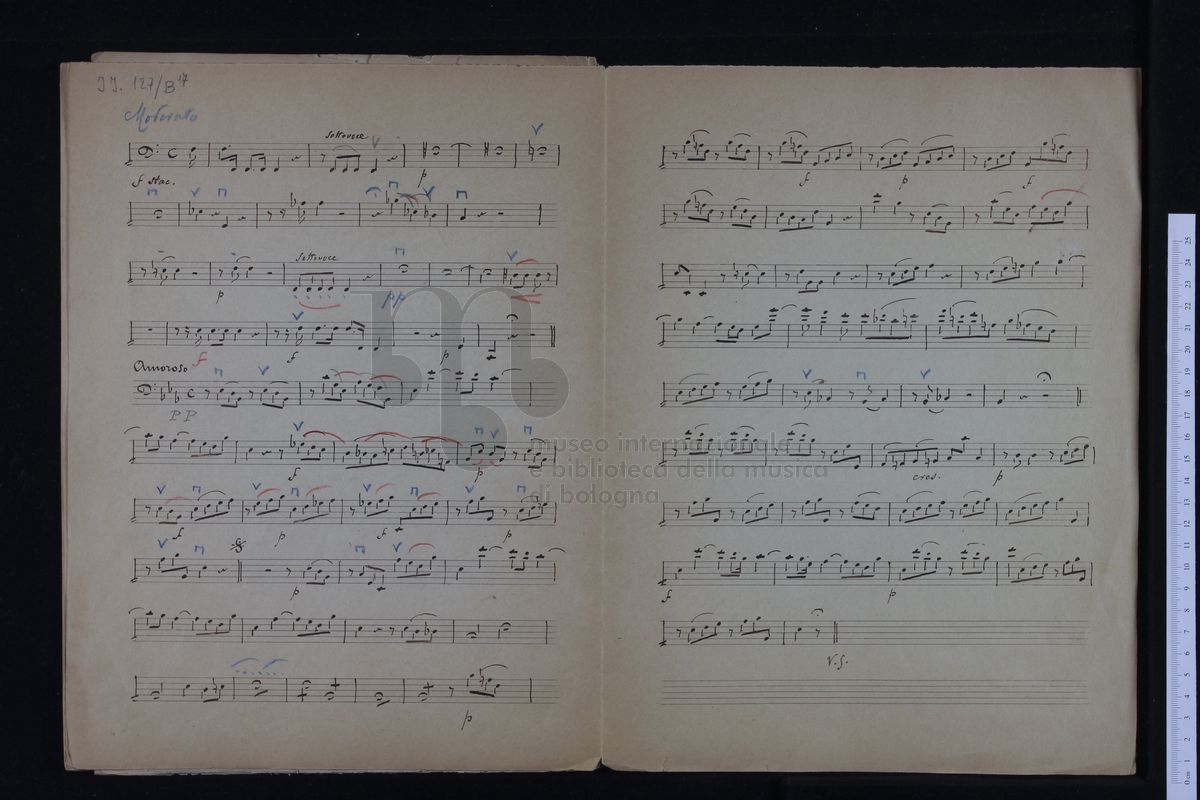 JJ. 127/B17
Moderato
Sottovoce
p
f stac.
Sottovoce
p
pp
f
f
p
Amoroso
PP
f
p
f
p
f
p
p
p
f
p
f
cres.
p
f
p
V.S.
museo internazionale
e biblioteca della musica
di bologna
cm 1 2 3 4 5 6 7 8 9 10 11 12 13 14 15 16 17 18 19 20 21 22 23 24 25